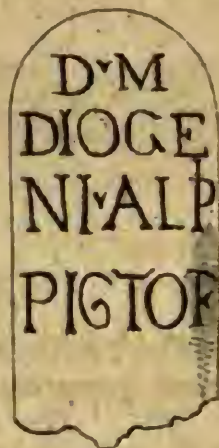 D·M
DIOGE
NI·ALP
PIGTOR